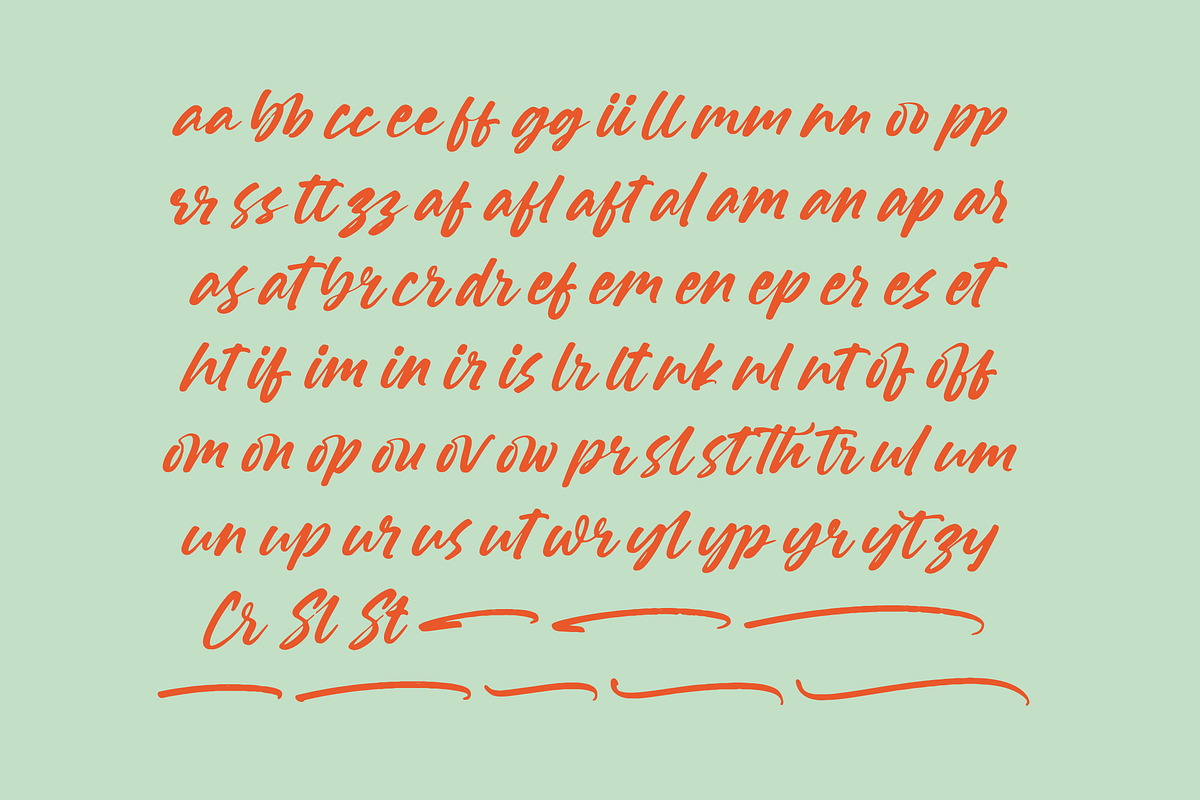 aa bb cc ee ff gg ii ll mm nn oo pp
rr ss tt zz af afl aft al am an ap ar
as at br cr dr ef em en ep er es et
ht if im in ir is lr lt nk nl nt of off
om on op ou ov ow pr sl st th tr ul um
un up ur us ut wr yl yp yr yt zy
Cr Sl St